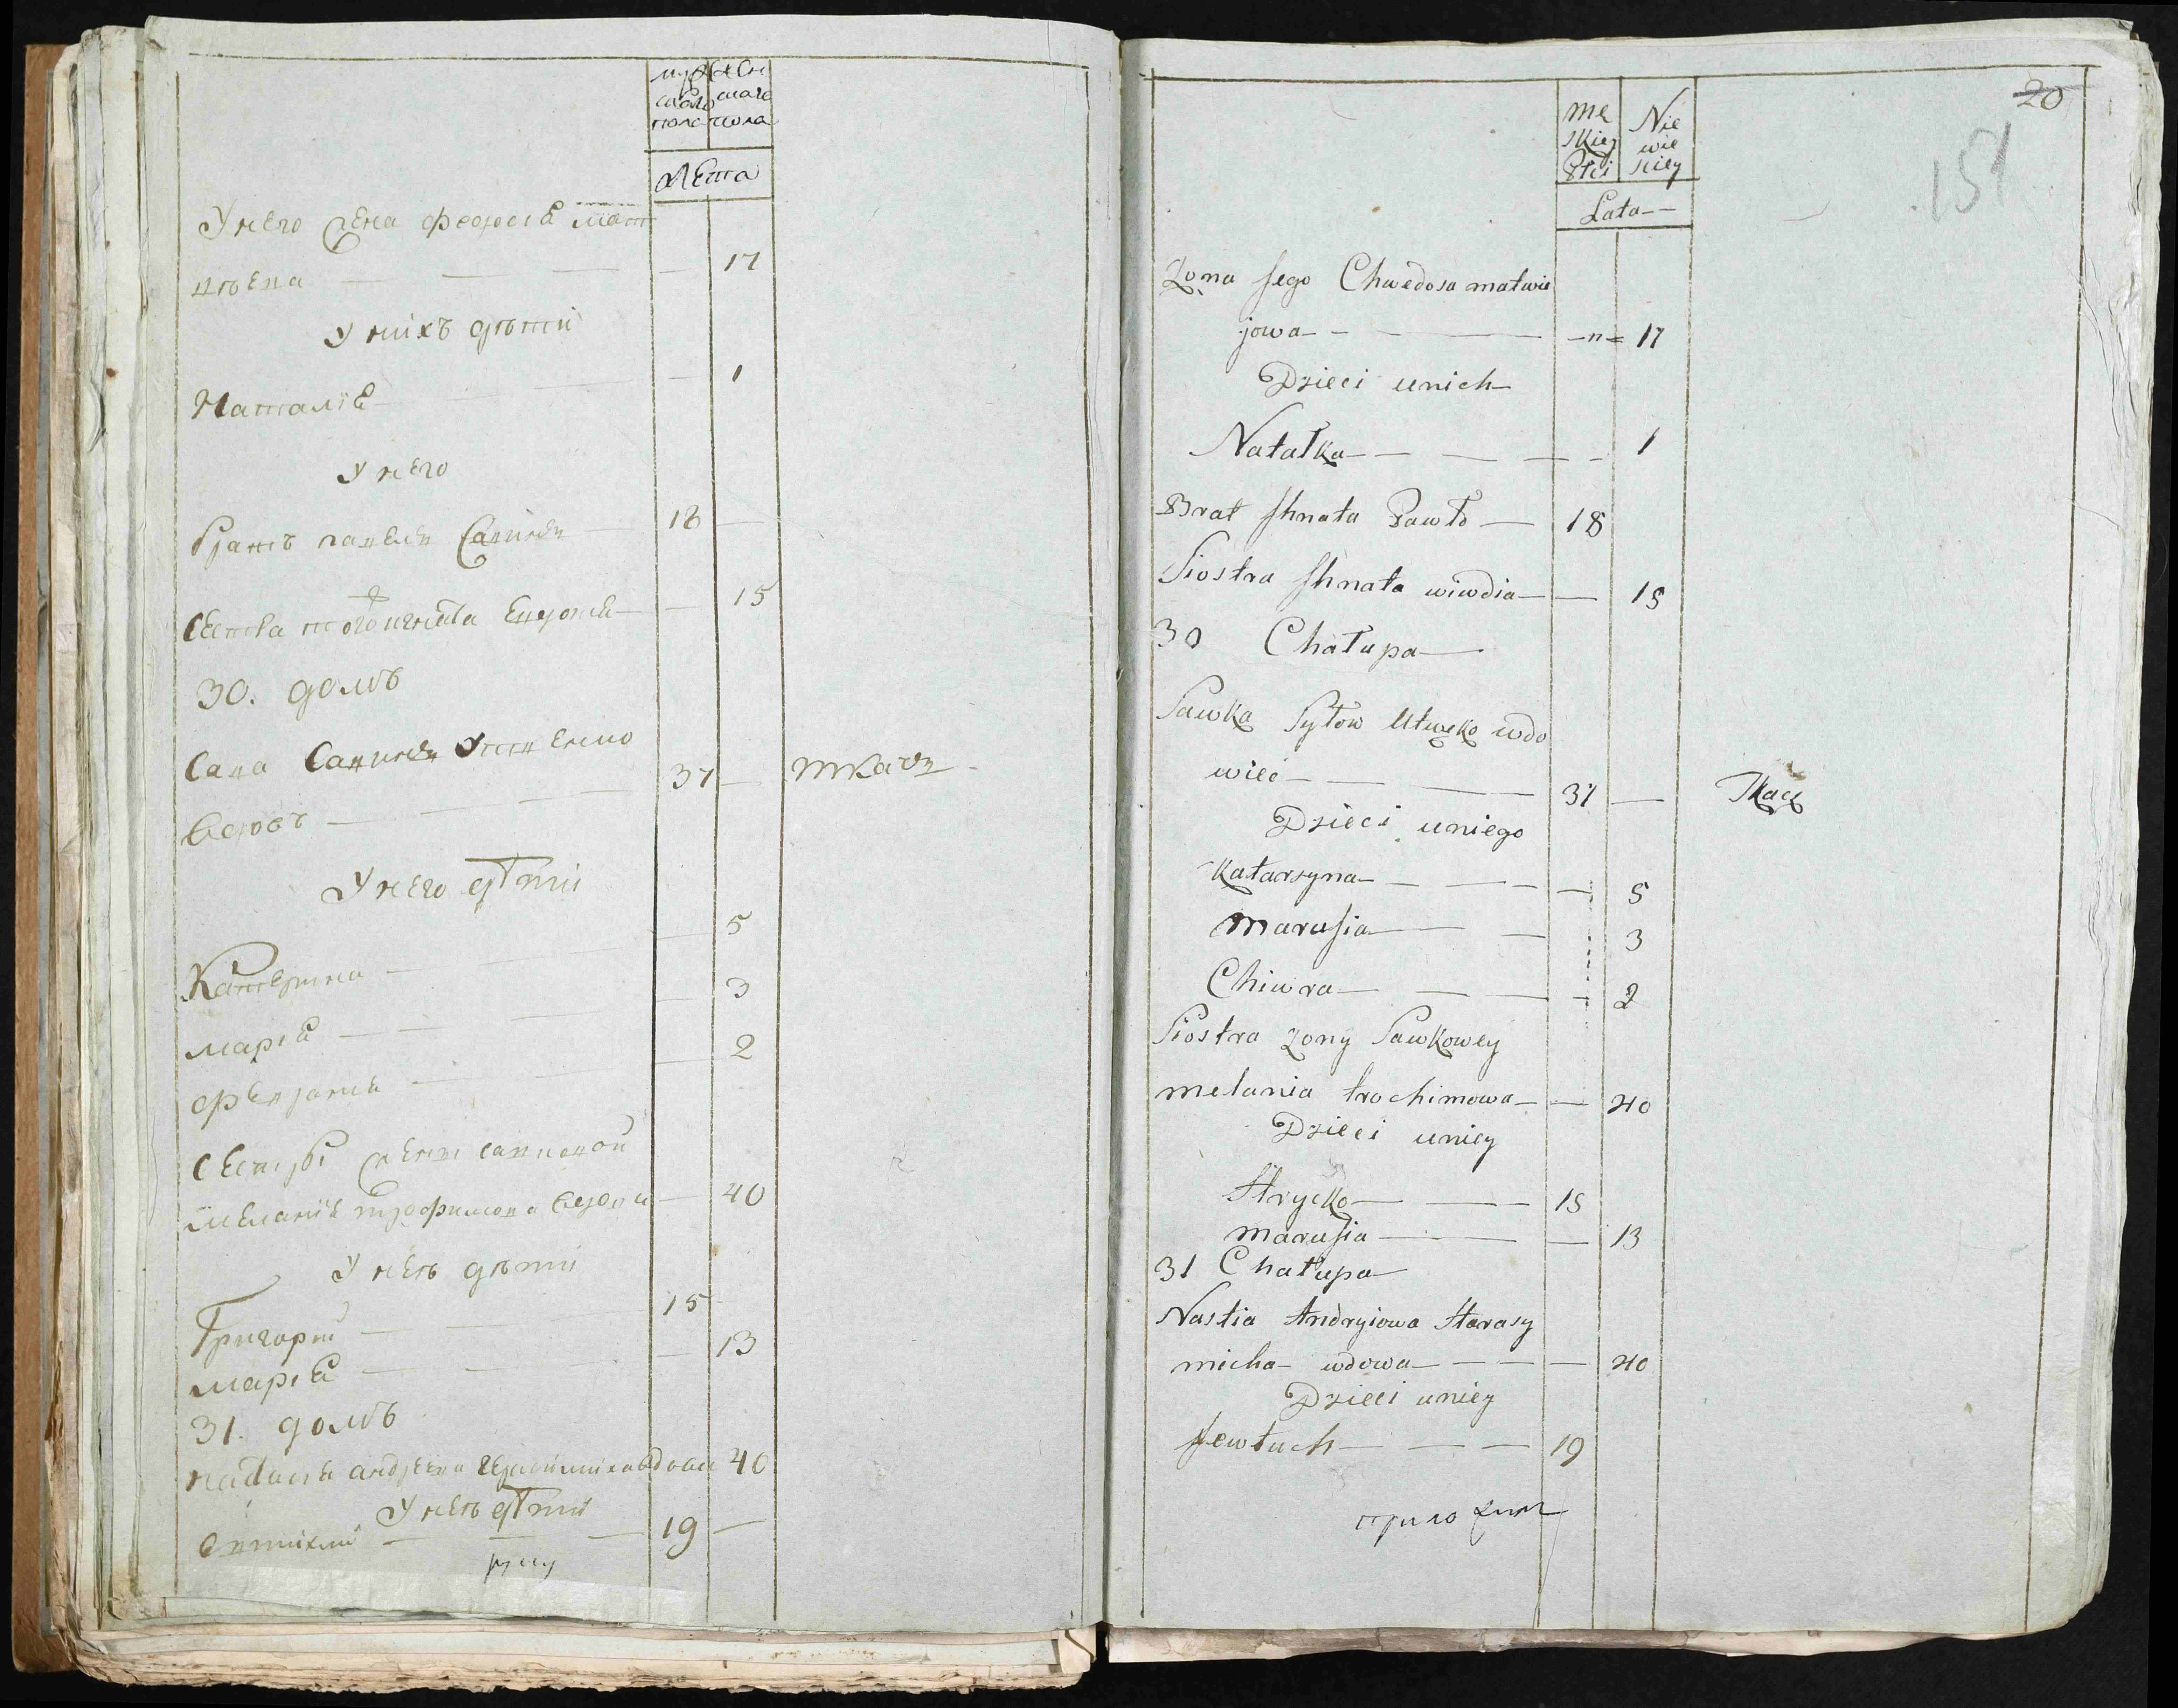 муж
скаго
пола
жен
скаго
пола
Лета
У него жена феодосіа мат
вѣева — — — — 17
У нихъ дѣти
Наталіа — — — 1
У него
братъ павелъ Савинъ — 18 —
Сестра того игната — — 15
30. домъ
Сава
37 — ткачъ
У него дѣти
Катерина — — — 5
маріа — — — 3
— — — 2
Сестра жены
меланіа трофимова вдова — 40
У неѣ дѣти
Григорий — — 15
маріа — — — 13
31. домъ
андреева вдова 40
У неѣ дѣти
Євтихий — — — 19 —
20
151
mę
skiey
Płci
Nie
wie
sciey
Lata —
Zona jego Chwedosa matwie
jowa — — — 17
Dzieci unich
Natałka — — — — 1
Brat Jhnata Pawło — 18
Siostra Jhnata wiwdia — — 15
30 Chałupa —
Sawka wdo
wiec — — — 37 — Tkacz
Dzieci uniego
Katarzyna — — — — 5
Marusia — — 3
Chiwra — — — — 2
Siostra zony Sawkowey
melania trochimowa — — 40
Dzieci uniey
Hrycko — — — 15
Marusia — — — — 13
31 Chałupa
Nastia Andryiowa Harasy
micha wdowa — — — — 40
Dzieci uniey
Jewtuch — — — 19